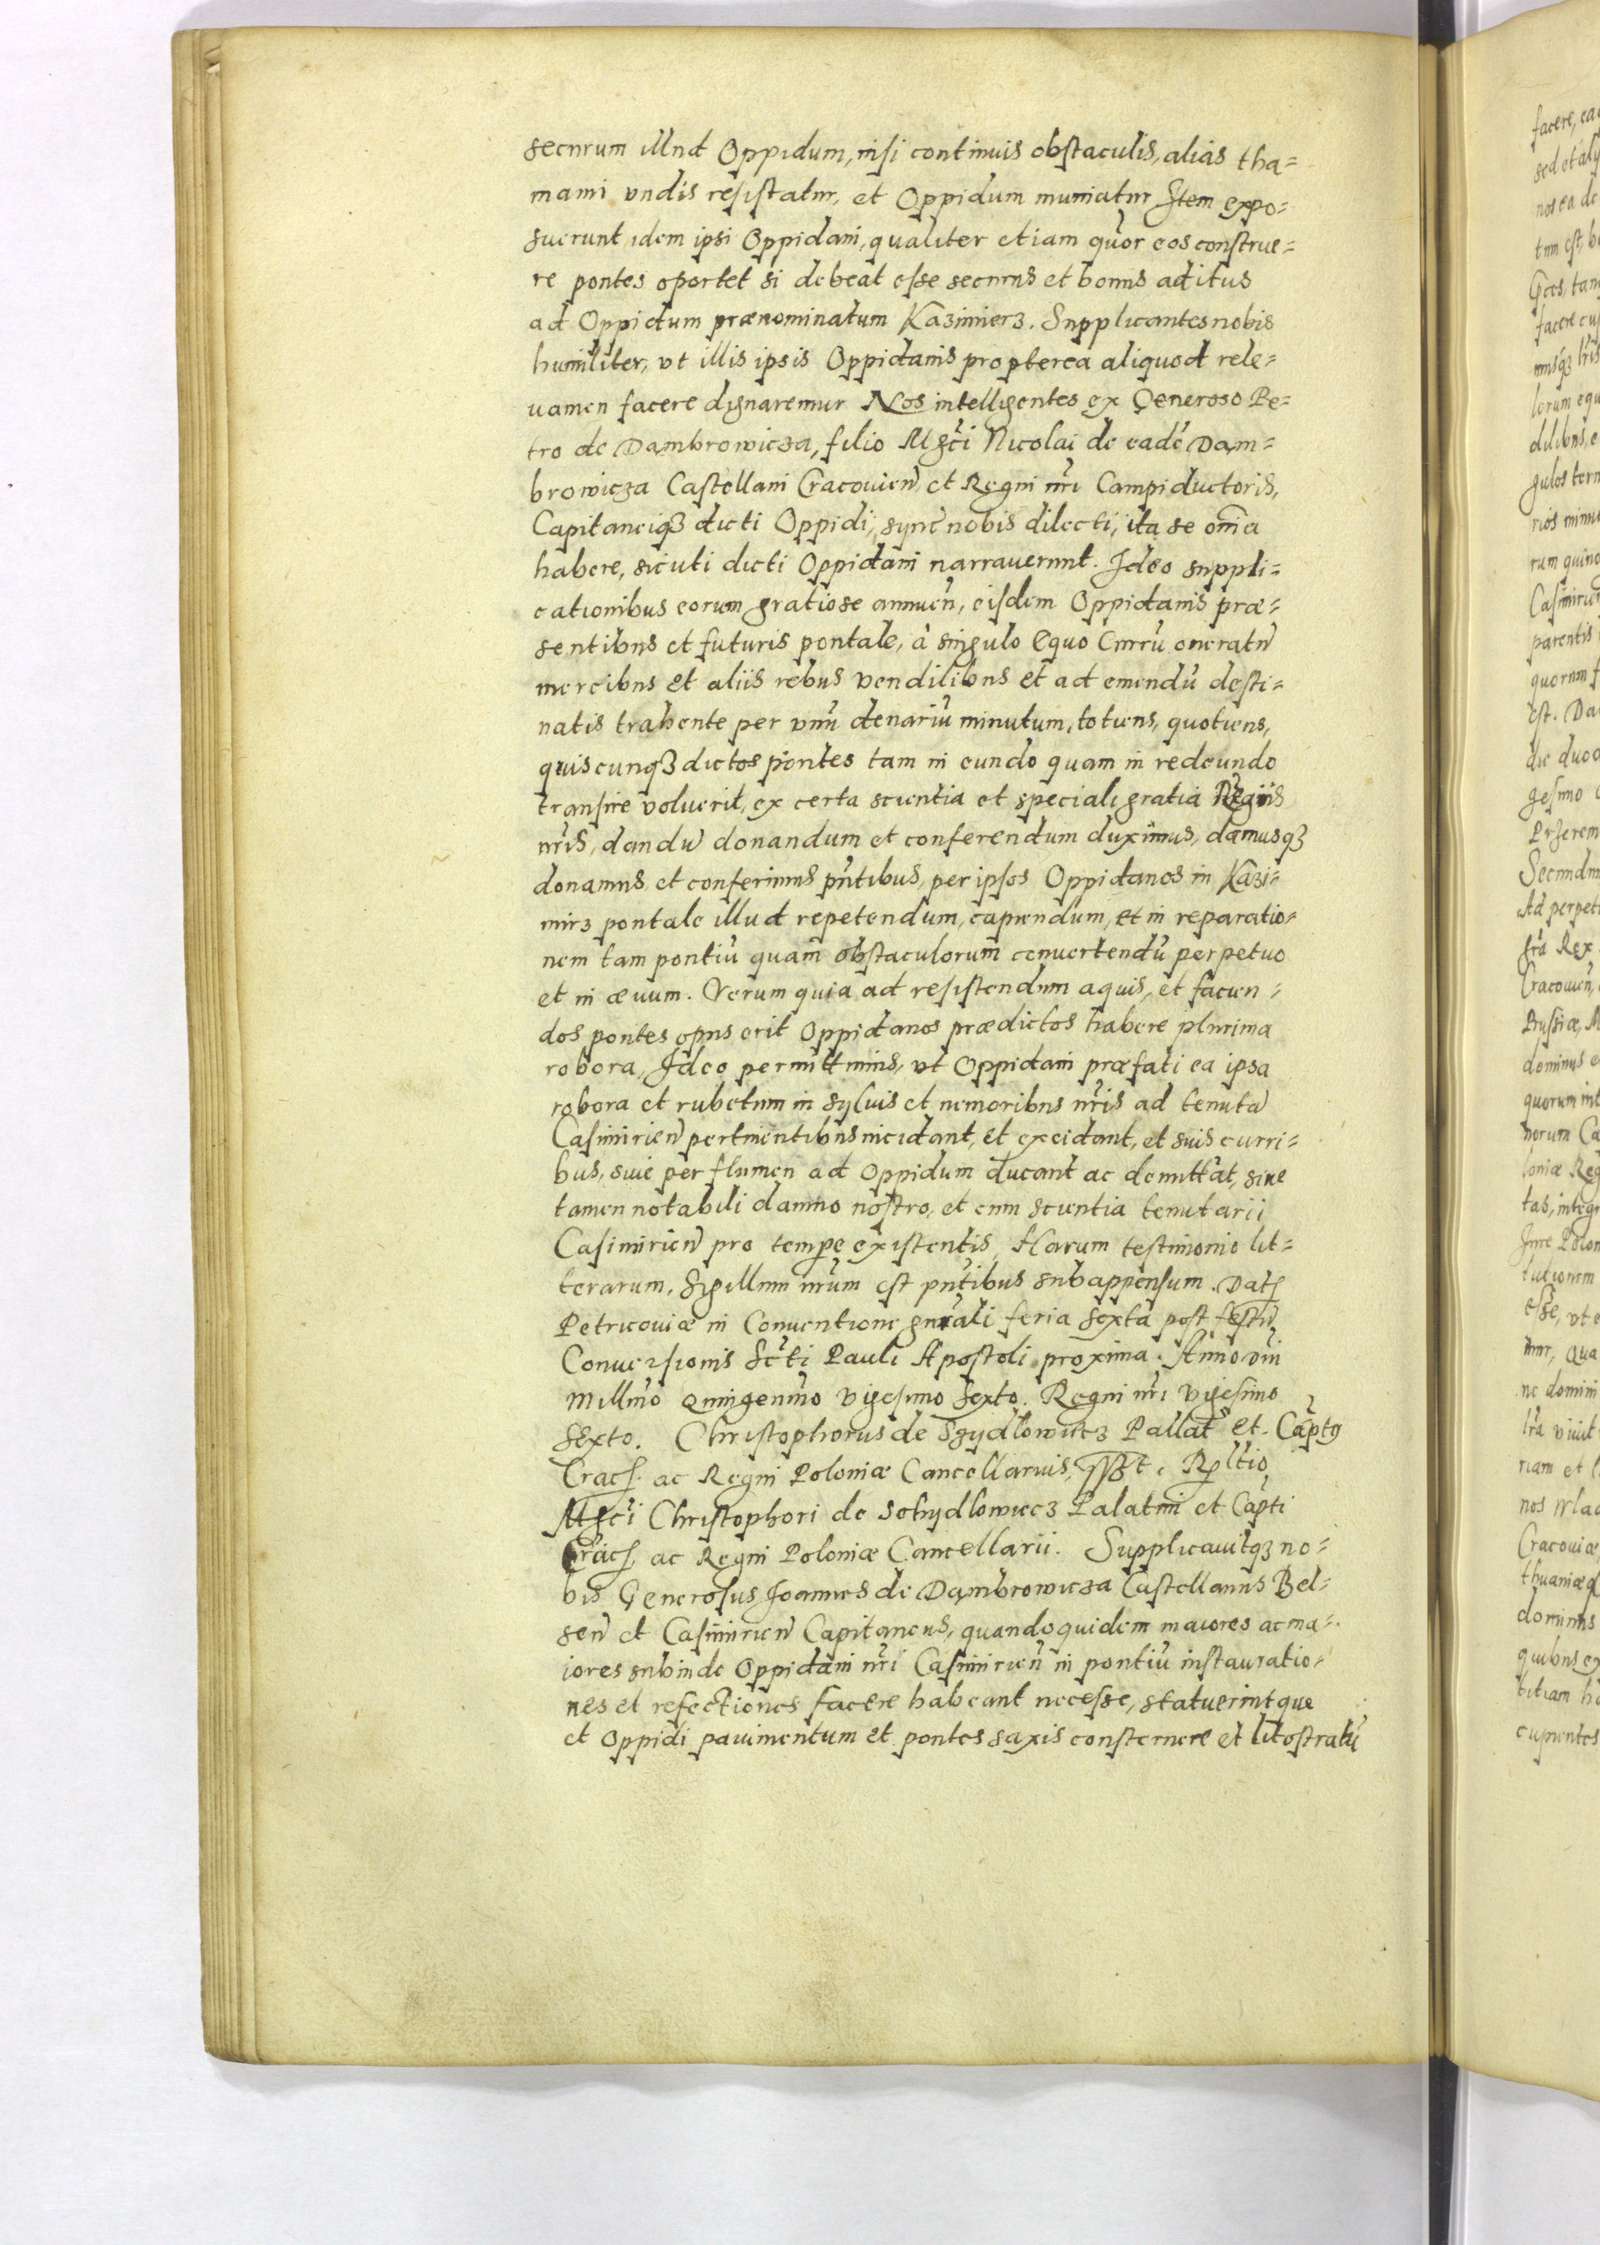 securum illud Oppidum, nisi continuis obstaculis, alias tha=
mami vndis resistatur, et Oppidum muniatur Item expo=
suerunt idem ipsi Oppidani, qualiter etiam quor eos construe=
re pontes oportet si debeat esse securus et bonus aditus
ad Oppidum prænominatum Kazimierz. Supplicantes nobis
humiliter, vt illis ipsis Oppidanis propterea aliquod rele=
uamen facere dignaremur Nos intelligentes ex Generoso Pe=
tro de Dambrowicza, filio Mgci Nicolai de eadē Dam=
browicza Castellani Cracouien̄ et Regni nr̄i Campiductoris,
Capitaneiqз dicti Oppidi, sync̄ nobis dilecti, ita se om̄ia
habere, sicuti dicti Oppidani narrauerunt. Ideo suppli=
cationibus eorum gratiose annuen̄, eisdem Oppidanis præ=
sentibus et futuris pontale, à singulo Equo Currū oneratū
mercibus et aliis rebus vendilibus et ad emendū desti=
natis trahente per vnū denariū minutum, totiens, quotiens,
quiscunqз dictos pontes tam in eundo quam in redeundo
transire voluerit, ex certa scientia et speciali gratia Regiis
nr̄is, dandū donandum et conferendum duximus, damusqз
donamus et conferimus pn̄tibus, per ipsos Oppidanos in Kazi=
mirz pontale illud repetendum, capiendum, et in reparatio=
nem tam pontiū quam obstaculorum conuertendū perpetuo
et in æuum. Verum quia ad resistendum aquis, et facien=
dos pontes opus erit Oppidanos prædictos habere plurima
robora, Ideo permittimus, vt Oppidani præfati ea ipsa
robora et rubetum in syluis et nemoribus nr̄is ad tenutā
Casimirien̄ pertinentibus incidant, et excidant, et suis curri=
bus, siue per flumen ad Oppidum ducant ac demittāt, sine
tamen notabili damno nostro, et cum scientia tenutarii
Casimirien̄ pro tempe existentis, Harum testimonio lit=
terarum, Sigillum nr̄um est pn̄tibus subappensum. Dat
Petricouiæ in Conuentione gnr̄ali feria sexta post festū
Conuersionis Sc̄ti Pauli Apostoli proxima. Anno Dn̄i
Millmō Quingenmō vigesimo sexto. Regni nr̄i vigesimo
sexto. Christophorus de Szydlowiecz Pallat̄ et Capt9
Crac. ac Regni Poloniæ Cancellarius, sszt. Rltio
Mgci Christophori de Schydlowiecz Palatini et Capti
Crac. ac Regni Poloniæ Cancellarii. Supplicauitqз no=
bis Generosus Joannes de Dambrowicza Castellanus Bel=
sen̄ et Casimirien̄ Capitaneus, quandoquidem maiores ac ma=
iores subinde Oppidani nr̄i Casimirien̄ in pontiū instauratio=
nes et refectiones facere habeant necesse, statuerintque
et Oppidi pauimentum et pontes saxis consternere et litostratū